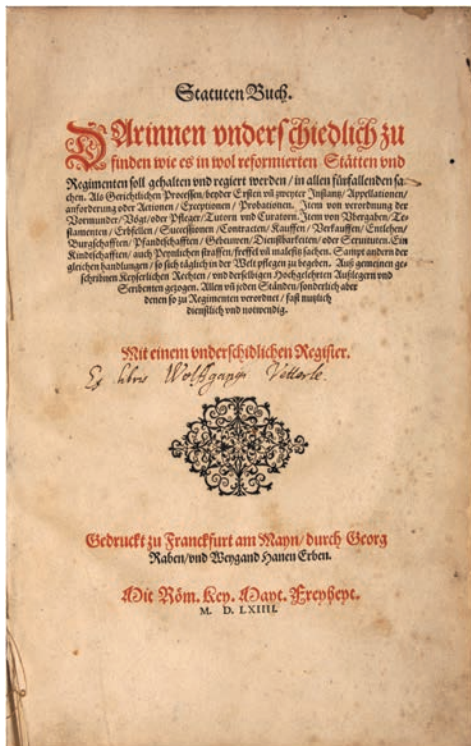 Statuten Buch.
DArinnen vnderschiedlich zu
finden wie es in wol reformierten Stätten vnd
Regimenten soll gehalten vnd regiert werden / in allen fürfallenden sa-
chen. Als Gerichtlichen Processen / beyder Ersten vñ zweyter Instantz / Appellationen /
anforderung oder Actionen / Exceptionen / Probationen. Item von verordnung der
Vormunder / Vögt / oder Pfleger / Tutorn vnd Curatorn. Item von Vbergaben / Te-
stamenten / Erbfellen / Successionen / Contracten / Kauffen / Verkauffen / Entlehen /
Burgschafften / Pfandtschafften / Gebeuwen / Dienstbarkeiten / oder Seruituten. Ein
Kindtschafften / auch Peynlichen straffen / freffel vñ malefitz sachen. Sampt andern der
gleichen handlungen / so sich täglich in der Welt pflegen zu begeben. Auß gemeinen ge-
schribnen Keyserlichen Rechten / vnd derselbigen Hochgelehrten Außlegern vnd
Scribenten gezogen. Allen vñ jeden Ständen / sonderlich aber
denen so zu Regimenten verordnet / fast nutzlich
dienstlich vnd notwendig.
Mit einem vnderschidlichen Register.
Ex libris Wolffgangi Vetterle.
Gedruckt zu Franckfurt am Mayn / durch Georg
Raben / vnd Weygand Hanen Erben.
Mit Röm. Key. Mayt. Freyheyt.
M. D. LXIIII.